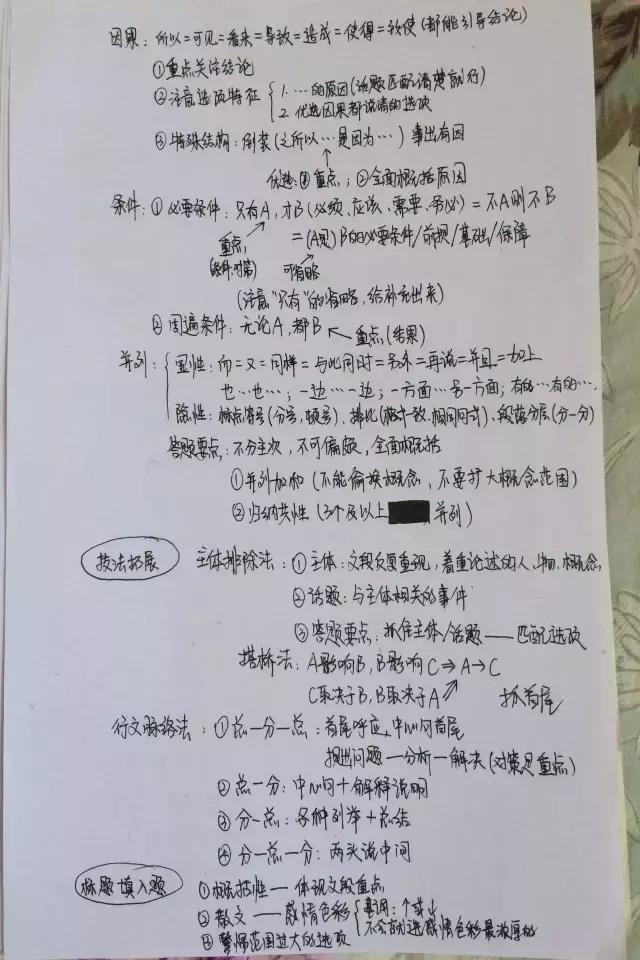 因果：所以=可见=看来=导致=造成=使得=致使(都能引导结论)
①重点关注结论
②注意选项特征 { 1. …的原因(话题匹配清楚就行)
2. 优选因果都说清的选项
③特殊结构：倒装(之所以…是因为…) 事出有因
优选：①重点；②全面概括原因
条件：①必要条件：只有A，才B(必须、应该、需要、务必)=不A则不B
重点(条件对策) 可省略 =(A是)B的必要条件/前提/基础/保障
(注意"只有"的省略，给补充出来)
②周遍条件：无论A，都B ← 重点(结果)
并列：{ 显性：而=又=同样=与此同时=另外=再说=并且=加上
也…也…；一边…一边；一方面…另一方面；有的…有的…
隐性：标点符号(分号、顿号)、排比(格式一致、相同句式)、段落分层(分一分)
答题要点：不分主次，不可偏颇，全面概括
①并列加和(不能偷换概念，不要扩大概念范围)
②归纳共性(3个及以上 并列)
技法拓展 主体排除法：①主体：文段反复重现，着重论述的人、物、概念
②话题：与主体相关的事件
③答题要点：抓住主体/话题——匹配选项
搭桥法：A影响B，B影响C⇒A→C
C取决于B，B取决于A 抓首尾
行文脉络法：①总一分一总：首尾呼应，中心句首尾
提出问题一分析一解决(对策是重点)
②总一分：中心句+解释说明
③分一总：各种列举+总结
④分一总一分：两头说中间
标题填入题 ①概括性—体现文段重点
②散文——感情色彩 { 基调：个或↓
不会就选感情色彩最浓厚的
③警惕范围过大的选项